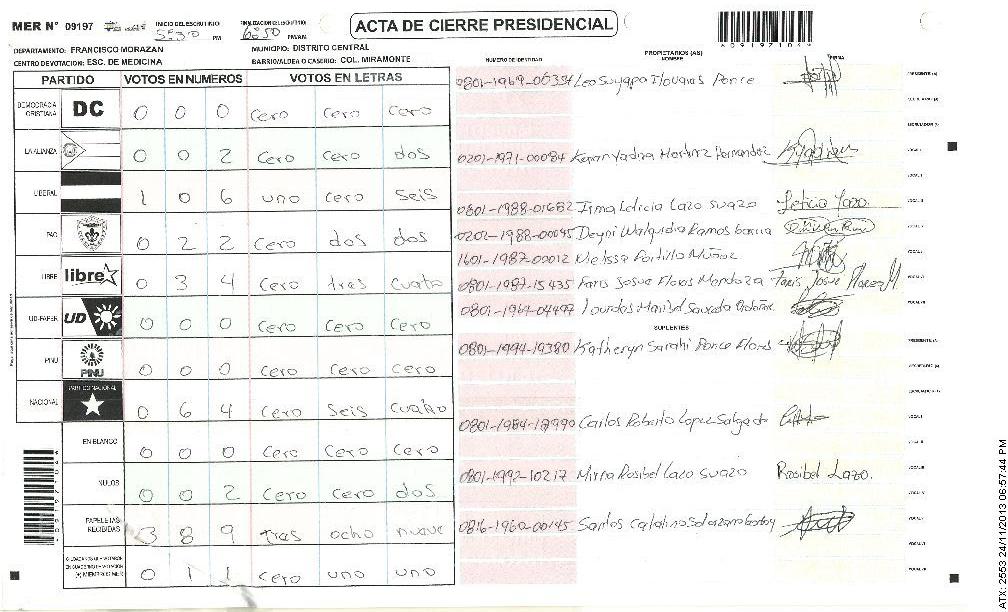 MER N° 09197 INICIO DEL ESCRUTINIO 5:30 PM FINALIZACION DEL ESCRUTINIO 6:50 PM/AM.
ACTA DE CIERRE PRESIDENCIAL
DEPARTAMENTO: FRANCISCO MORAZAN MUNICIPIO: DISTRITO CENTRAL
CENTRO DE VOTACION: ESC. DE MEDICINA BARRIO/ALDEA O CASERIO: COL. MIRAMONTE
PARTIDO VOTOS EN NUMEROS VOTOS EN LETRAS
DEMOCRACIA CRISTIANA DC 0 0 0 Cero Cero Cero
LA ALIANZA 0 0 2 Cero Cero dos
LIBERAL 1 0 6 uno cero seis
PAC 0 2 2 Cero dos dos
LIBRE libre 0 3 4 Cero tres cuatro
UD-FAPER UD 0 0 0 Cero Cero Cero
PINU PINU 0 0 0 Cero Cero Cero
NACIONAL PARTIDO NACIONAL 0 6 4 Cero Seis cuatro
EN BLANCO 0 0 0 Cero Cero Cero
NULOS 0 0 2 Cero Cero dos
PAPELETAS RECIBIDAS 3 8 9 tres ocho nueve
(+) MIEMBROS MER 0 1 1 cero uno uno
NUMERO DE IDENTIDAD PROPIETARIOS (AS) NOMBRE FIRMA
0801-1969-06354 Ponce PRESIDENTE (A)
SECRETARIO (A)
ESCRUTADOR (A)
0201-1971-00084 Karen Yadira Martinez Hernandez VOCAL I
0801-1988-01682 Irma Leticia Lazo Suazo Leticia Lazo.
0202-1988-00045 Ramos Garcia
1601-1987-00012 Melissa Portillo Muñoz
0801-1987-15435 Faris Josue Flores Mendoza
0801-1964-04497 Lourdes Maribel
SUPLENTES
0801-1994-19380 Katheryn Sarahi Ponce Flores PRESIDENTE (A)
0801-1984-12990 Carlos Roberto Lopez Salgado
0801-1992-10217 Mirna Rosibel Lazo Suazo Rosibel Lazo.
0816-1960-00145 Santos Catalino
*09197104*
ATX: 2553 24/11/2013 06:57:44 PM